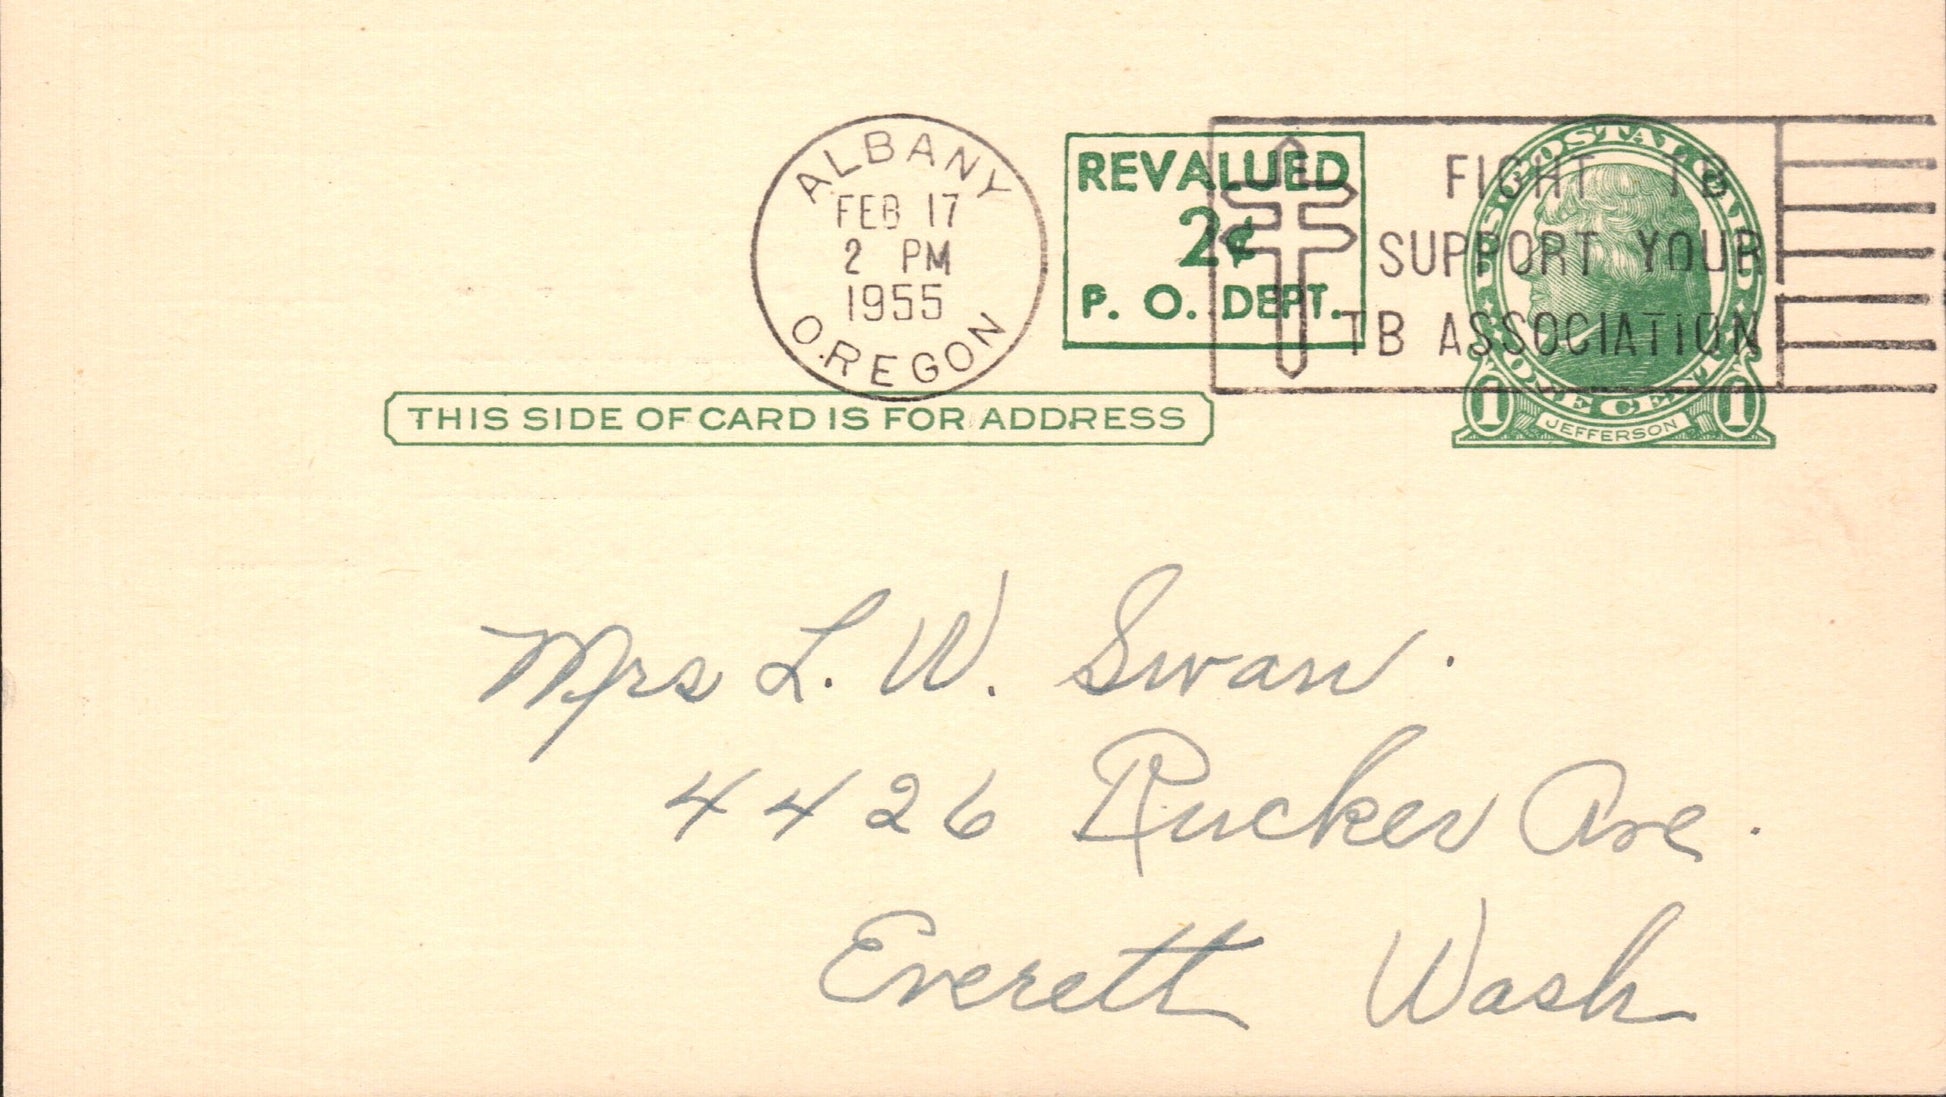 ALBANY
FEB 17
2 PM
1955
OREGON
REVALUED
2¢
P. O. DEPT.
FIGHT TB
SUPPORT YOUR
TB ASSOCIATION
U.S. POSTAL CARD
ONE CENT
1 JEFFERSON 1
THIS SIDE OF CARD IS FOR ADDRESS
Mrs L. W. Swan.
4426 Rucker Ave.
Everett Wash